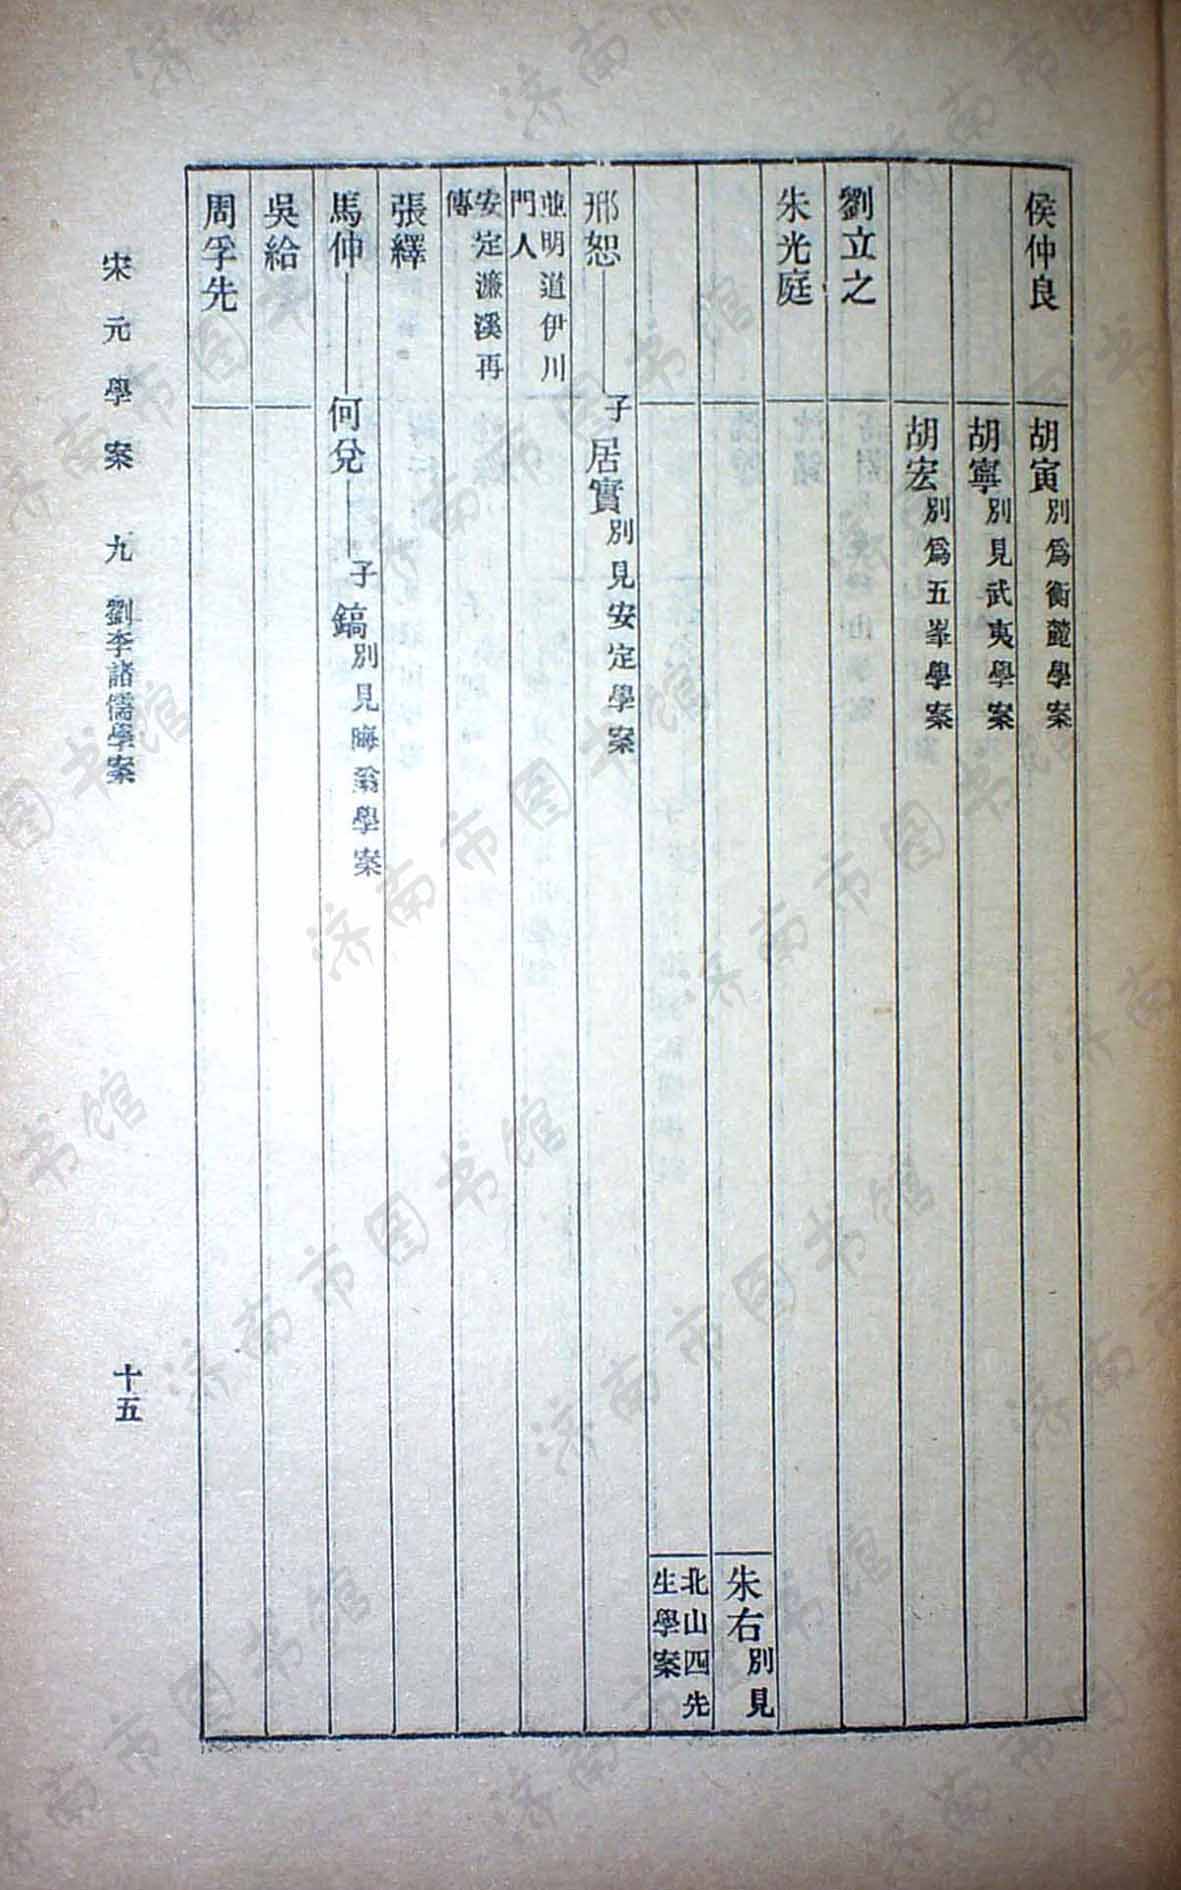 侯仲良
胡寅別爲衡麓學案
胡寧別見武夷學案
胡宏別爲五峯學案
劉立之
朱光庭
朱右別見
北山四先
生學案
邢恕
子居實別見安定學案
並明道伊川
門人
安定濂溪再
傳
張繹
馬伸
何兌
子鎬別見晦翁學案
吳給
周孚先
宋元學案 九 劉李諸儒學案
十五
济南市图书馆